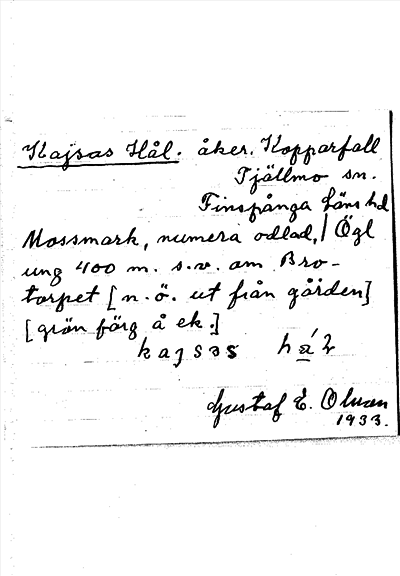 Kajsas Hål. åker. Kopparfall
Tjällmo sn.
Finspånga läns hd
Mossmark, numera odlad, / Ögl
ung 400 m. s.v. om Bro-
torpet [n.ö. ut från gården]
[grön färg å ek.]
Gustaf E. Olsson
1933.